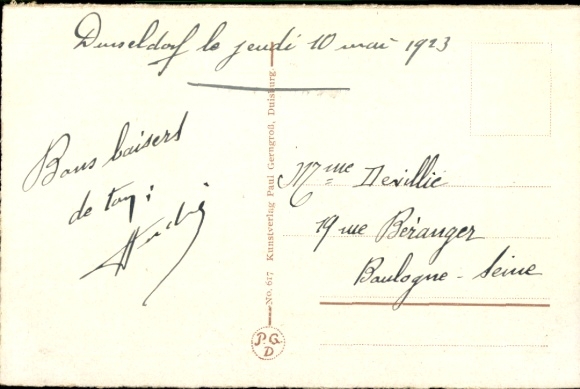 Dusseldorf le jeudi 10 mai 1923
Bons baisers
de ton
André
No. 617 Kunstverlag Paul Gerngroß, Duisburg.
P.G.
D
Mme Devillie
19 rue Béranger
Boulogne - Seine